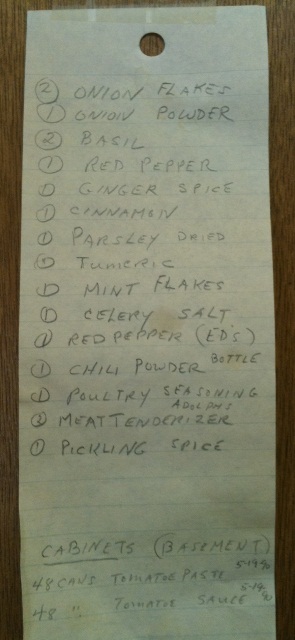 ② ONION FLAKES
① ONION POWDER
② BASIL
① RED PEPPER
① GINGER SPICE
① CINNAMON
① PARSLEY DRIED
① TUMERIC
① MINT FLAKES
① CELERY SALT
① RED PEPPER (ED'S)
BOTTLE
① CHILI POWDER
① POULTRY SEASONING
ADOLPHS
③ MEAT TENDERIZER
① PICKLING SPICE
CABINETS (BASEMENT)
48 CANS TOMATOE PASTE 5-19 90
48 " TOMATOE SAUCE 5-19 90